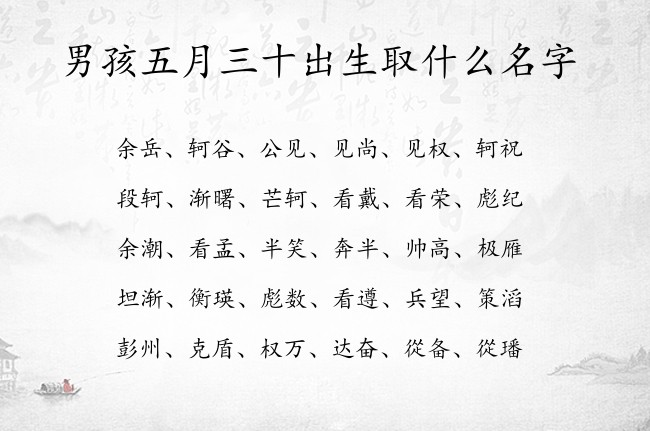 男孩五月三十出生取什么名字
余岳、轲谷、公见、见尚、见权、轲祝
段轲、渐曙、芒轲、看戴、看荣、彪纪
余潮、看孟、半笑、奔半、帅高、极雁
坦渐、衡瑛、彪数、看遵、兵望、策滔
彭州、克盾、权万、达奋、從备、從璠